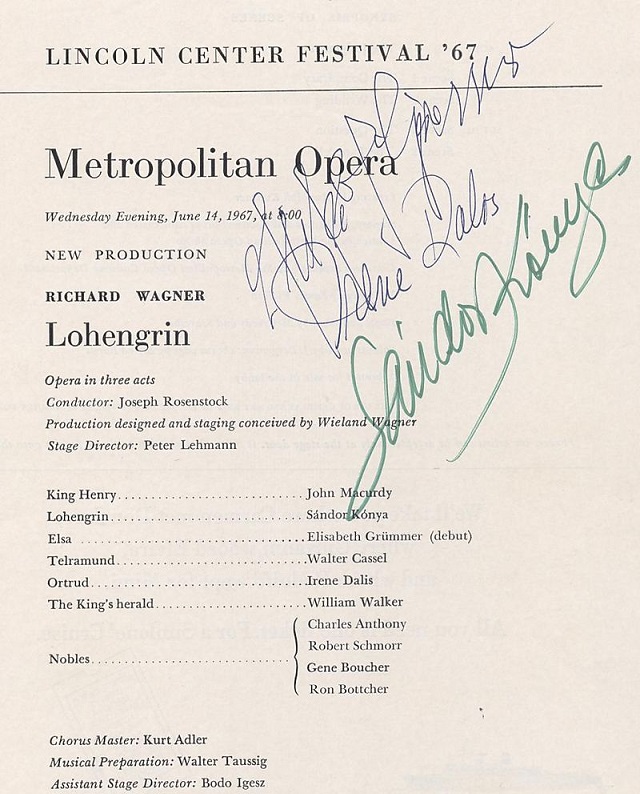 LINCOLN CENTER FESTIVAL '67
Metropolitan Opera
Wednesday Evening, June 14, 1967, at 8:00
NEW PRODUCTION
RICHARD WAGNER
Lohengrin
Irene Dalis
Sándor Kónya
Opera in three acts
Conductor: Joseph Rosenstock
Production designed and staging conceived by Wieland Wagner
Stage Director: Peter Lehmann
King Henry..............................John Macurdy
Lohengrin..............................Sándor Kónya
Elsa ..............................Elisabeth Grümmer (debut)
Telramund..............................Walter Cassel
Ortrud..............................Irene Dalis
The King's herald....................William Walker
Nobles..............................
Charles Anthony
Robert Schmorr
Gene Boucher
Ron Bottcher
Chorus Master: Kurt Adler
Musical Preparation: Walter Taussig
Assistant Stage Director: Bodo Igesz